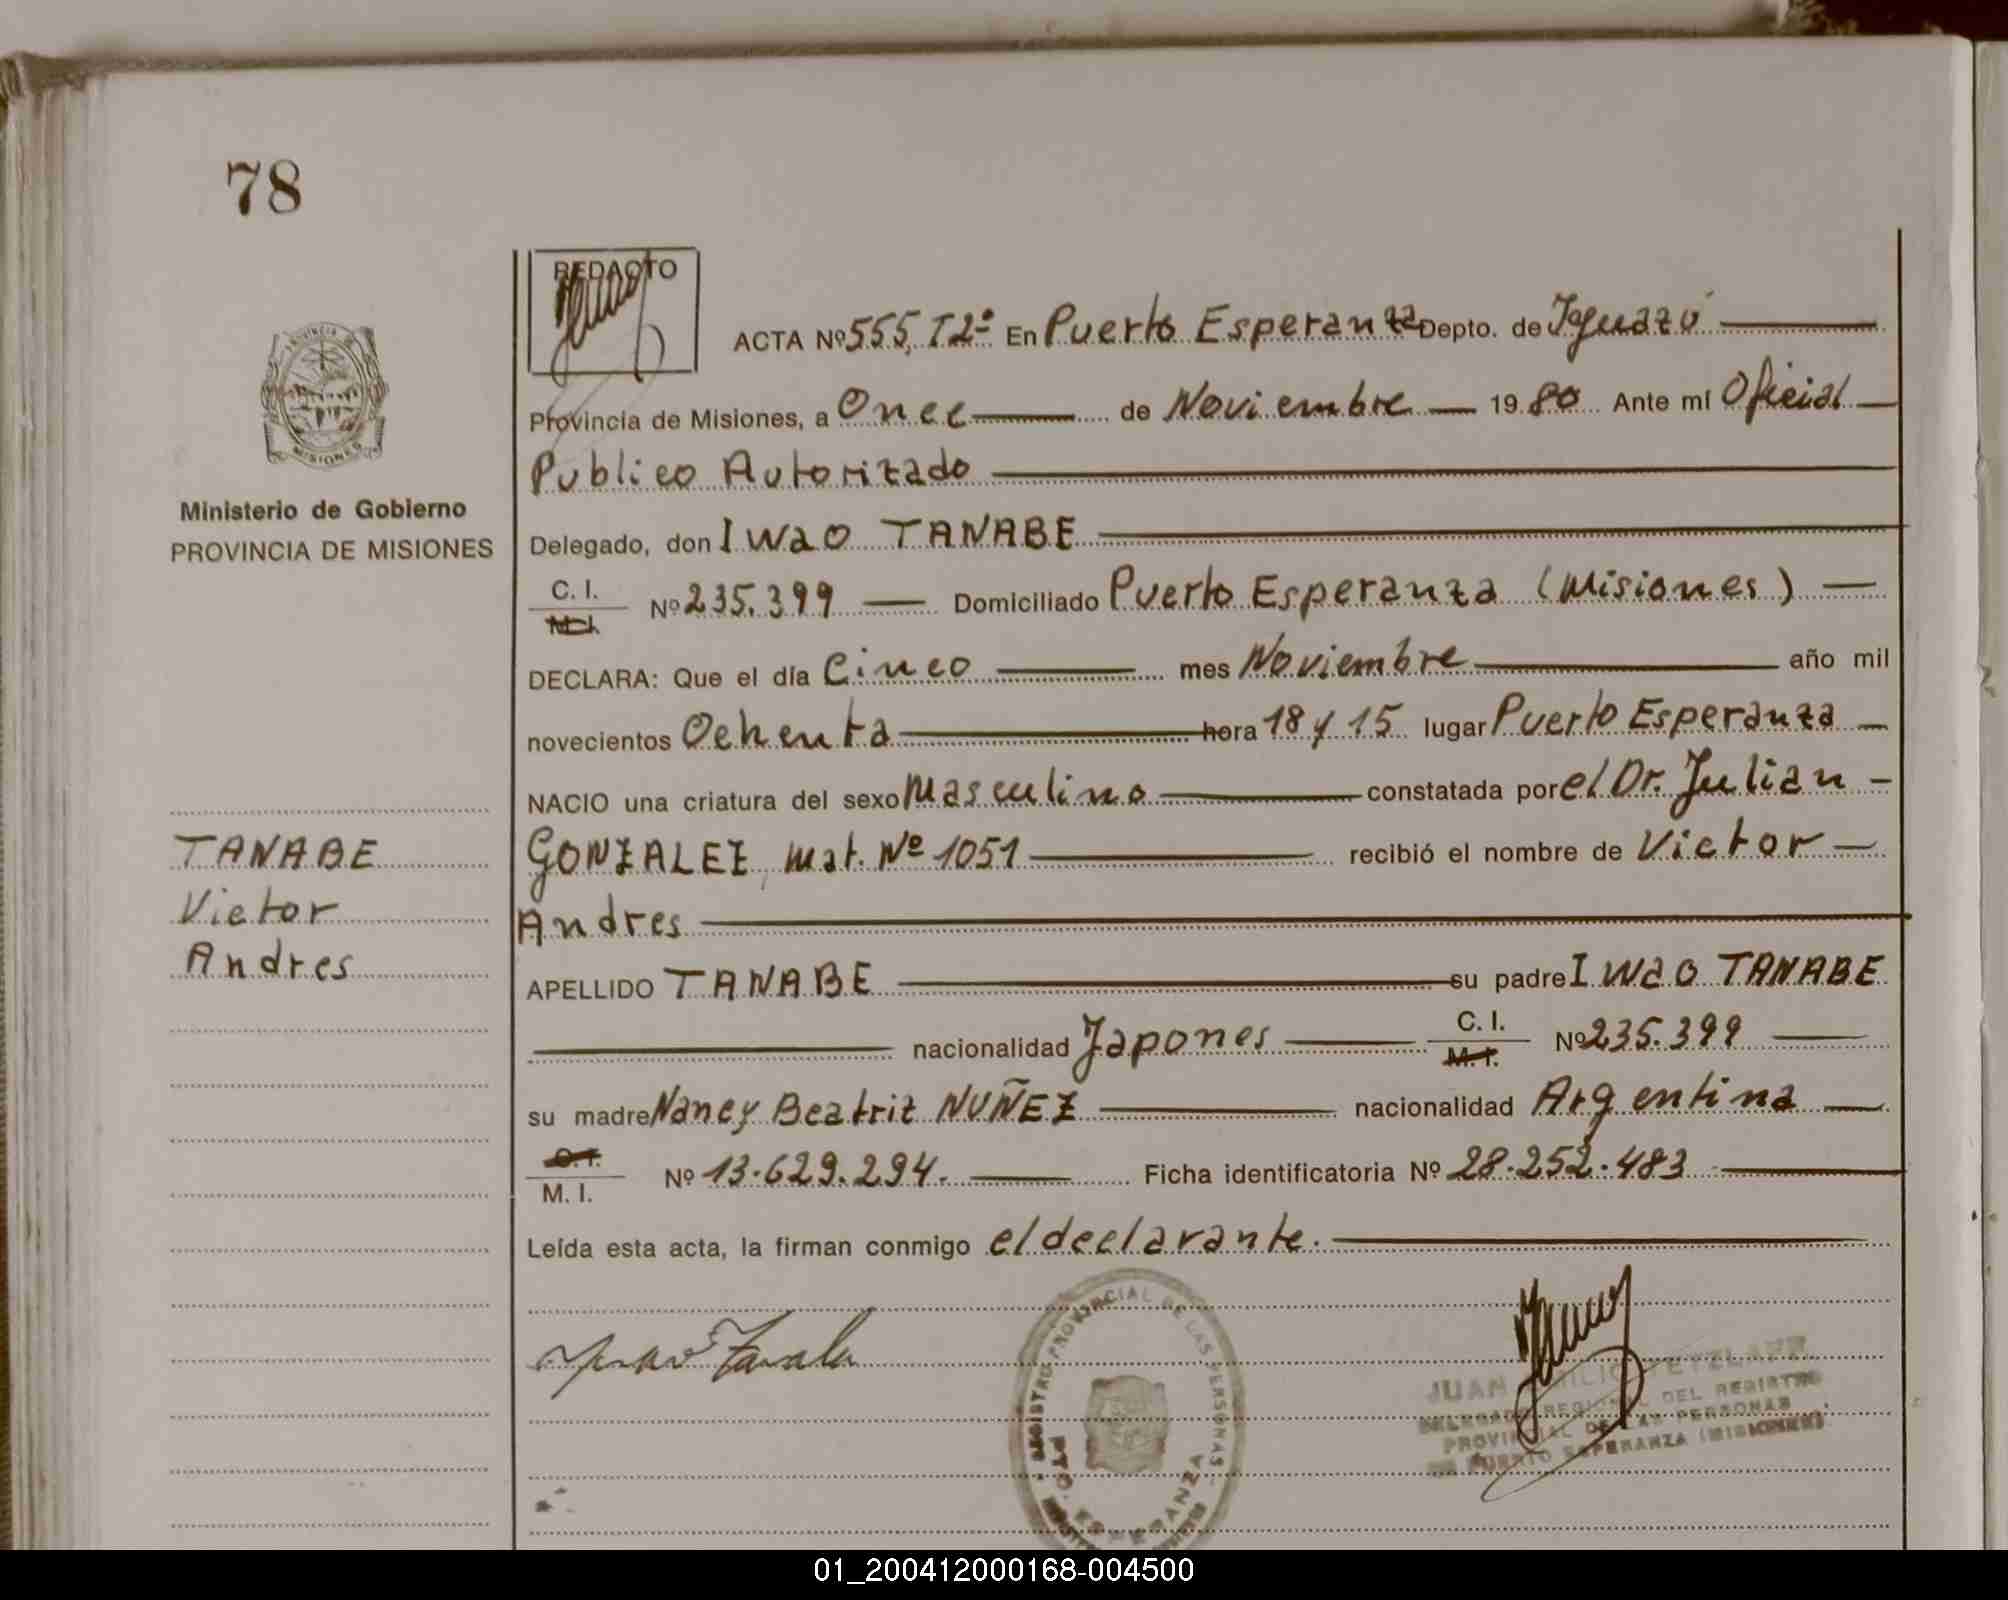 78
REDACTO
ACTA Nº 555, T2º En Puerto Esperanza Depto. de Iguazú
Provincia de Misiones, a Once de Noviembre 1980 Ante mí Oficial
Publico Autorizado
Ministerio de Gobierno
PROVINCIA DE MISIONES
Delegado, don Iwao TANABE
C. I.
M. I. Nº 235.399 Domiciliado Puerto Esperanza (Misiones)
DECLARA: Que el día Cinco mes Noviembre año mil
novecientos Ochenta hora 18 y 15 lugar Puerto Esperanza
NACIO una criatura del sexo Masculino constatada por el Dr. Julian
GONZALEZ, Mat. Nº 1051 recibió el nombre de Victor
Andres
TANABE
Victor
Andres
APELLIDO TANABE su padre Iwao TANABE
nacionalidad Japones C. I. M. I. Nº 235.399
su madre Nancy Beatriz NUÑEZ nacionalidad Argentina
C. I.
M. I. Nº 13.629.294. Ficha identificatoria Nº 28.252.483
Leída esta acta, la firman conmigo el declarante.
REGISTRO PROVINCIAL DE LAS PERSONAS
PTO. ESPERANZA
JUAN
DELEGADO REGIONAL DEL REGISTRO
PROVINCIAL DE LAS PERSONAS
PUERTO ESPERANZA (MISIONES)
01_200412000168-004500